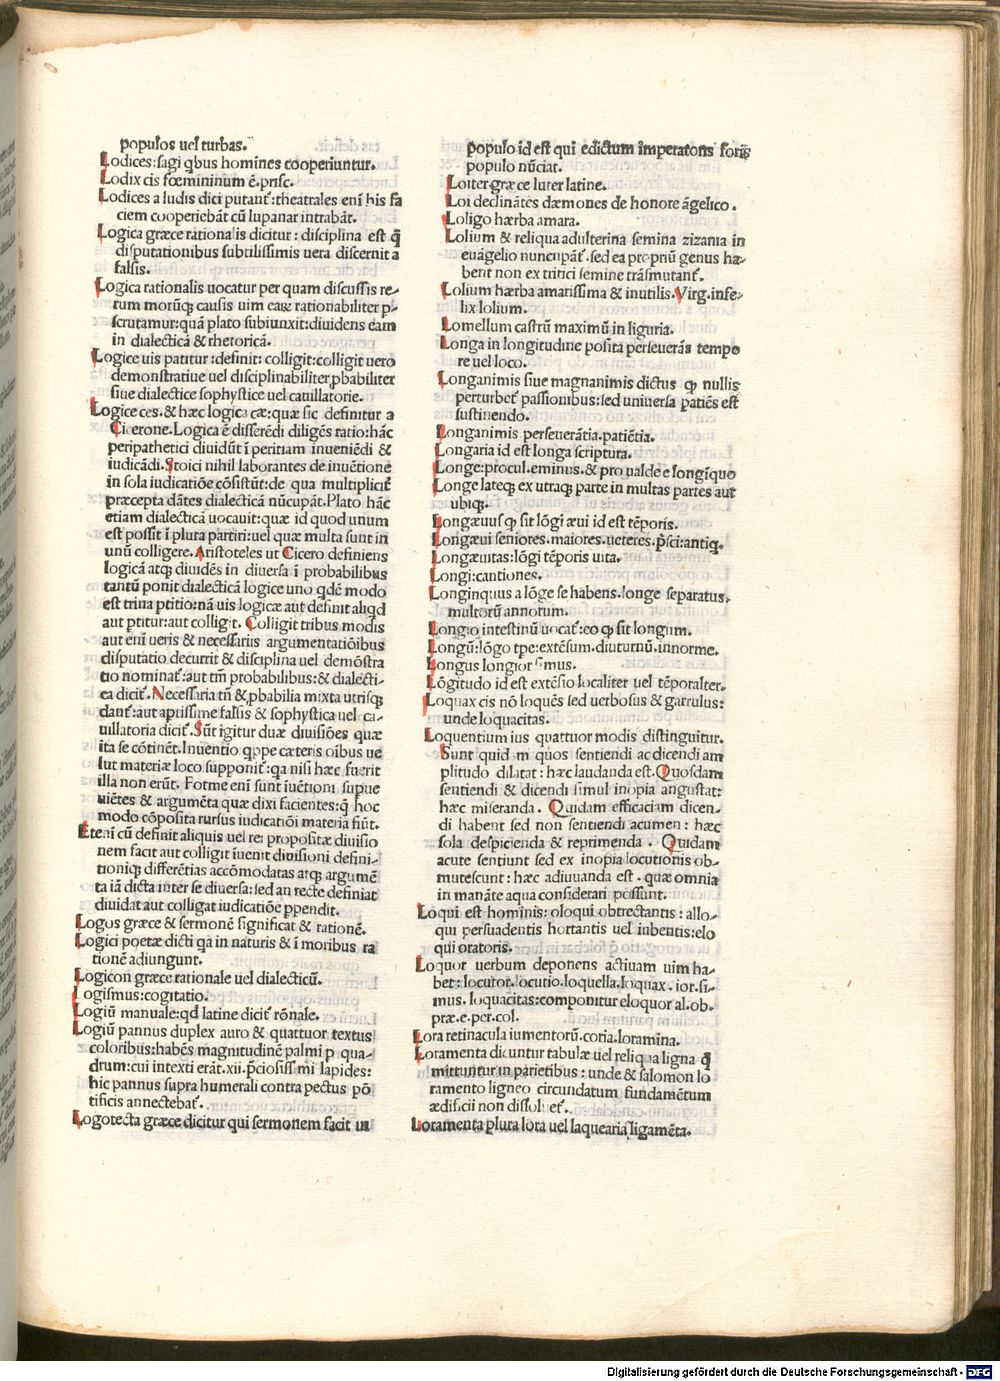 populos uel turbas.
Lodices:sagi qbus homines cooperiuntur.
Lodix cis fœmininum ē.prisc.
Lodices a ludis dici putant᷑:theatrales eni his fa
ciem cooperiebāt cū lupanar intrabāt.
Logica græce rationalis dicitur: disciplina est q̄
disputationibus subtilissimis uera discernit a
falsis.
Logica rationalis uocatur per quam discussis re-
rum morūq; causis uim earꝝ rationabiliter p-
scrutamur:quā plato subiunxit:diuidens eam
in dialecticā & rhetoricā.
Logice uis patitur:definit: colligit:colligit uero
demonstratiue uel disciplinabiliter,pbabiliter
siue dialectice sophystice uel cauillatorie.
Logice ces.& hæc logica cæ:quæ sic definitur a
Cicerone.Logica ē disserēdi diligēs ratio:hāc
peripathetici diuidūt ī peritiam inueniēdi &
iudicādi.Stoici nihil laborantes de inuētione
in sola iudicatiōe cōsistūt:de qua multiplicit᷑
præcepta dātes dialecticā nūcupāt.Plato hāc
etiam dialecticā uocauit:quæ id quod unum
est possit ī plura partiri:uel quæ multa sunt in
unū colligere.Aristoteles ut Cicero definiens
logicā atq; diuidēs in diuersa ī probabilibus
tantū ponit dialecticā logice uno qdē modo
est trina ptitio:nā uis logicæ aut definit aliqd
aut ptitur:aut colligit.Colligit tribus modis
aut enī ueris & necessariis argumentatiōibus
disputatio decurrit & disciplina uel demōstra
tio nominat᷑:aut tm̄ probabilibus:& dialecti-
ca dicit᷑.Necessaria tn̄ & pbabilia mixta utrisq;
dant᷑:aut aptissime falsis & sophystica uel ca-
uillatoria dicit᷑.Sūt igitur duæ diuisiōes quæ
ita se cōtinēt.Inuentio qppe cæteris oībus ue
lut materiæ loco supponit᷑:qa nisi hæc fuerit
illa non erūt. Forme enī sunt īuētioni supue
uiētes & argumēta quæ dixi facientes:q̄ hoc
modo cōposita rursus iudicatiōi materia fiūt.
Etenī cū definit aliquis uel rei propositæ diuisio
nem facit aut colligit īuenit diuisioni defini-
tioniq; differētias accōmodatas atq; argumē
ta iā dicta inter se diuersa:sed an recte definiat
diuidat aut colligat iudicatiōe ppendit.
Logos græce & sermonē significat & rationē.
Logici poetæ dicti qa in naturis & ī moribus ra
tionē adiungunt.
Logicon græce rationale uel dialecticū.
Logismus:cogitatio.
Logiū manuale:qd latine dicit᷑ rōnale.
Logiū pannus duplex auro & quattuor textus
coloribus:habēs magnitudinē palmi p qua-
drum:cui intexti erāt.xii.pciosissimi lapides:
hic pannus supra humerali contra pectus pō
tificis annectebat᷑.
Logotecta græce dicitur qui sermonem facit in
populo id est qui edictum imperatoris foris
populo nūciat.
Loiter græce luter latine.
Loi declinātes dæmones de honore āgelico.
Loligo hærba amara.
Lolium & reliqua adulterina semina zizania in
euāgelio nuncupāt᷑.sed ea propriū genus ha-
bent non ex tritici semine trāsmutant᷑.
Lolium hærba amarissima & inutilis.Virg.infe-
lix lolium.
Lomellum castrū maximū in liguria.
Longa in longitudine posita perseuerās tempo
re uel loco.
Longanimis siue magnanimis dictus ꝙ nullis
perturbet᷑ passionibus:sed uniuersa patiēs est
sustinendo.
Longanimis perseuerātia.patiētia.
Longaria id est longa scriptura.
Longe:procul.eminus.& pro ualde e longīquo
Longe lateq; ex utraq; parte in multas partes aut
ubiq;.
Longæuus ꝙ sit lōgi æui id est tēporis.
Longæui seniores.maiores.ueteres.pſci:antiq.
Longæuitas:lōgi tēporis uita.
Longi:cantiones.
Longinquus a lōge se habens.longe separatus.
multorū annorum.
Longio intestinū uocat᷑:eo ꝙ sit longum.
Longū:lōgo tpe:extēsum.diuturnū.innorme.
Longus longior simus.
Lōgitudo id est extēsio localiter uel tēporaliter.
Loquax cis nō loquēs sed uerbosus & garrulus:
unde loquacitas.
Loquentium ius quattuor modis distinguitur.
Sunt quidm quos sentiendi ac dicendi am
plitudo dilatat: hæc laudanda est.Quosdam
sentiendi & dicendi simul inopia angustat:
hæc miseranda. Quidam efficaciam dicen-
di habent sed non sentiendi acumen: hæc
sola despicienda & reprimenda. Quidam
acute sentiunt sed ex inopia locutionis ob-
mutescunt: hæc adiuuanda est. quæ omnia
in manāte aqua considerari possunt.
Loqui est hominis: oloqui obtrectantis: allo-
qui persuadentis hortantis uel iubentis:elo
qui oratoris.
Loquor uerbum deponens actiuam uim ha-
bet: locutor.locutio.loquella.loquax.ior.si-
mus. loquacitas:componitur eloquor al.ob.
præ.e.per.col.
Lora retinacula iumentorū.coria.loramina.
Loramenta dicuntur tabulæ uel reliqua ligna q̄
mittuntur in parietibus: unde & salomon lo
ramento ligneo circundatum fundamētum
ædificii non dissoluet᷑.
Loramenta plura lora uel laquearia ligamēta.
Digitalisierung gefördert durch die Deutsche Forschungsgemeinschaft - DFG